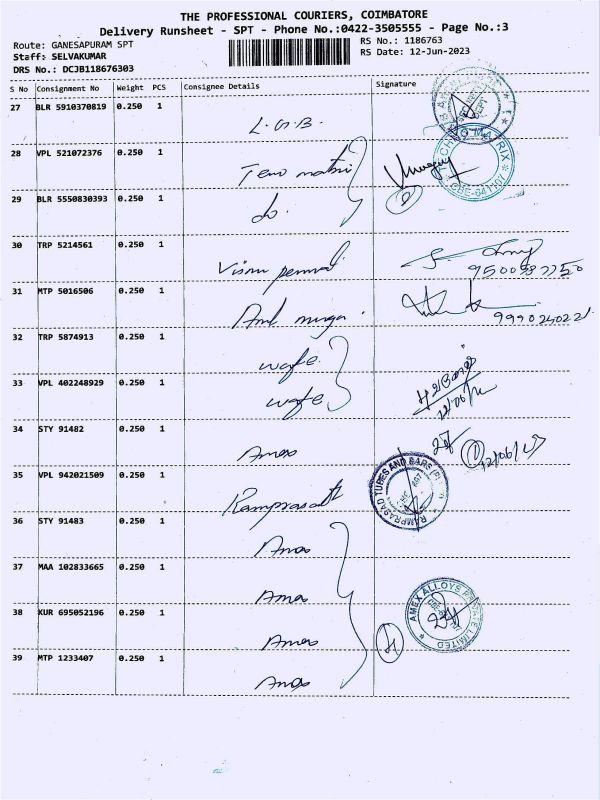 THE PROFESSIONAL COURIERS, COIMBATORE
Delivery Runsheet - SPT - Phone No.:0422-3505555 - Page No.:3
Route: GANESAPURAM SPT
RS No.: 1186763
Staff: SELVAKUMAR
RS Date: 12-Jun-2023
DRS No.: DCJB118676303
S No Consignment No Weight PCS Consignee Details Signature
27 BLR 5910370819 0.250 1 L.G.B.
28 VPL 521072376 0.250 1
29 BLR 5550830393 0.250 1 do.
TECHNO MATRIX
CBE-641 107
30 TRP 5214561 0.250 1
31 MTP 5016506 0.250 1
32 TRP 5874913 0.250 1 wafe
33 VPL 402248929 0.250 1 wafe
34 STY 91482 0.250 1 Amex
12/06/23
35 VPL 942021509 0.250 1 Ramprasath
RAMPRASAD TUBES AND BARS (P) LTD
36 STY 91483 0.250 1 Amex
37 MAA 102833665 0.250 1 Amex
38 KUR 695052196 0.250 1 Amex
AMEX ALLOYS PRIVATE LIMITED
39 MTP 1233407 0.250 1 Amex